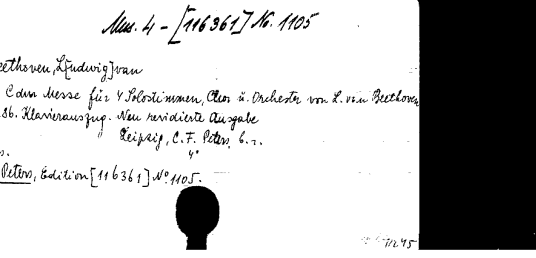 Mus. 4 - [116361] No. 1105
eethoven, L[udwig] van
C dur Messe für 4 Solostimmen, Chor u. Orchester von L. van Beethoven
86. Klavierauszug. Neu revidierte Ausgabe
Leipzig, C. F. Peters,
4°
s.
Peters, Edition [116361] No 1105.